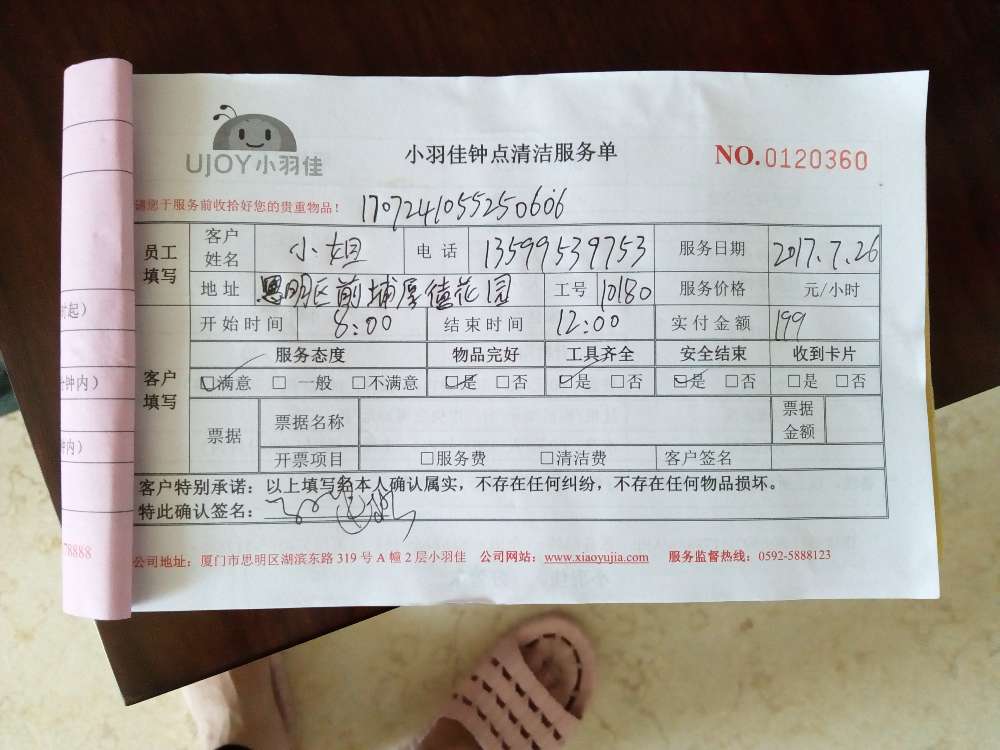 UJOY小羽佳
小羽佳钟点清洁服务单
NO.0120360
请您于服务前收拾好您的贵重物品！ 1707241055250606
员工填写 客户姓名 小姐 电话 13599539753 服务日期 2017.7.26
地址 思明区前埔厚德花园 工号 10180 服务价格 元/小时
开始时间 8:00 结束时间 12:00 实付金额 199
客户填写 服务态度 物品完好 工具齐全 安全结束 收到卡片
☑满意 □ 一般 □不满意 ☑是 □否 ☑是 □否 ☑是 □否 □是 □否
票据 票据名称 票据金额
开票项目 □服务费 □清洁费 客户签名
客户特别承诺：以上填写经本人确认属实，不存在任何纠纷，不存在任何物品损坏。
特此确认签名：
公司地址：厦门市思明区湖滨东路 319 号 A 幢 2 层小羽佳 公司网站：www.xiaoyujia.com 服务监督热线：0592-5888123
时起）
分钟内）
钟内）
78888